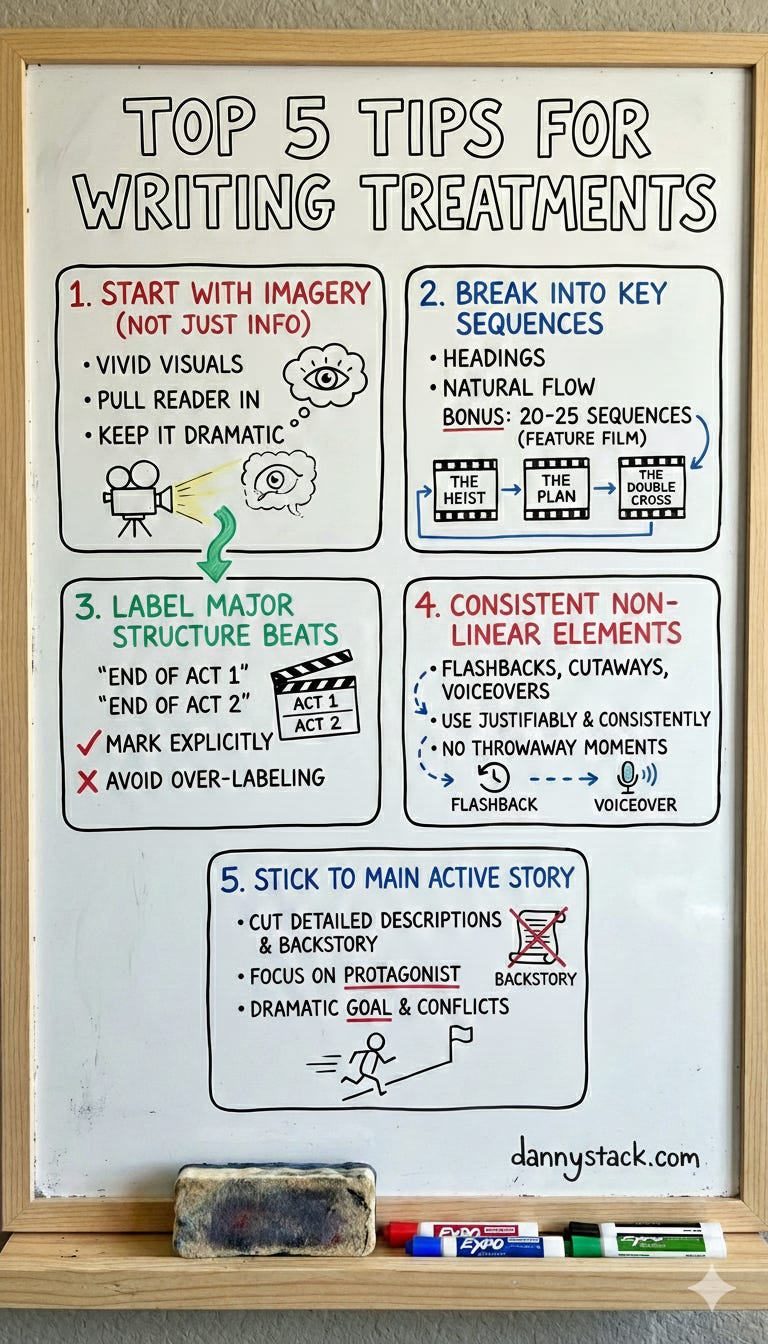 TOP 5 TIPS FOR
WRITING TREATMENTS
1. START WITH IMAGERY
(NOT JUST INFO)
• VIVID VISUALS
• PULL READER IN
• KEEP IT DRAMATIC
2. BREAK INTO KEY
SEQUENCES
• HEADINGS
• NATURAL FLOW
BONUS: 20-25 SEQUENCES
(FEATURE FILM)
THE
HEIST
THE
PLAN
THE
DOUBLE
CROSS
3. LABEL MAJOR
STRUCTURE BEATS
"END OF ACT 1"
"END OF ACT 2"
ACT 1
ACT 2
✓ MARK EXPLICITLY
X AVOID OVER-LABELING
4. CONSISTENT NON-
LINEAR ELEMENTS
• FLASHBACKS, CUTAWAYS,
VOICEOVERS
• USE JUSTIFIABLY & CONSISTENTLY
• NO THROWAWAY MOMENTS
FLASHBACK
VOICEOVER
5. STICK TO MAIN ACTIVE STORY
• CUT DETAILED DESCRIPTIONS
& BACKSTORY
BACKSTORY
• FOCUS ON PROTAGONIST
• DRAMATIC GOAL & CONFLICTS
dannystack.com
EXPO
EXPO